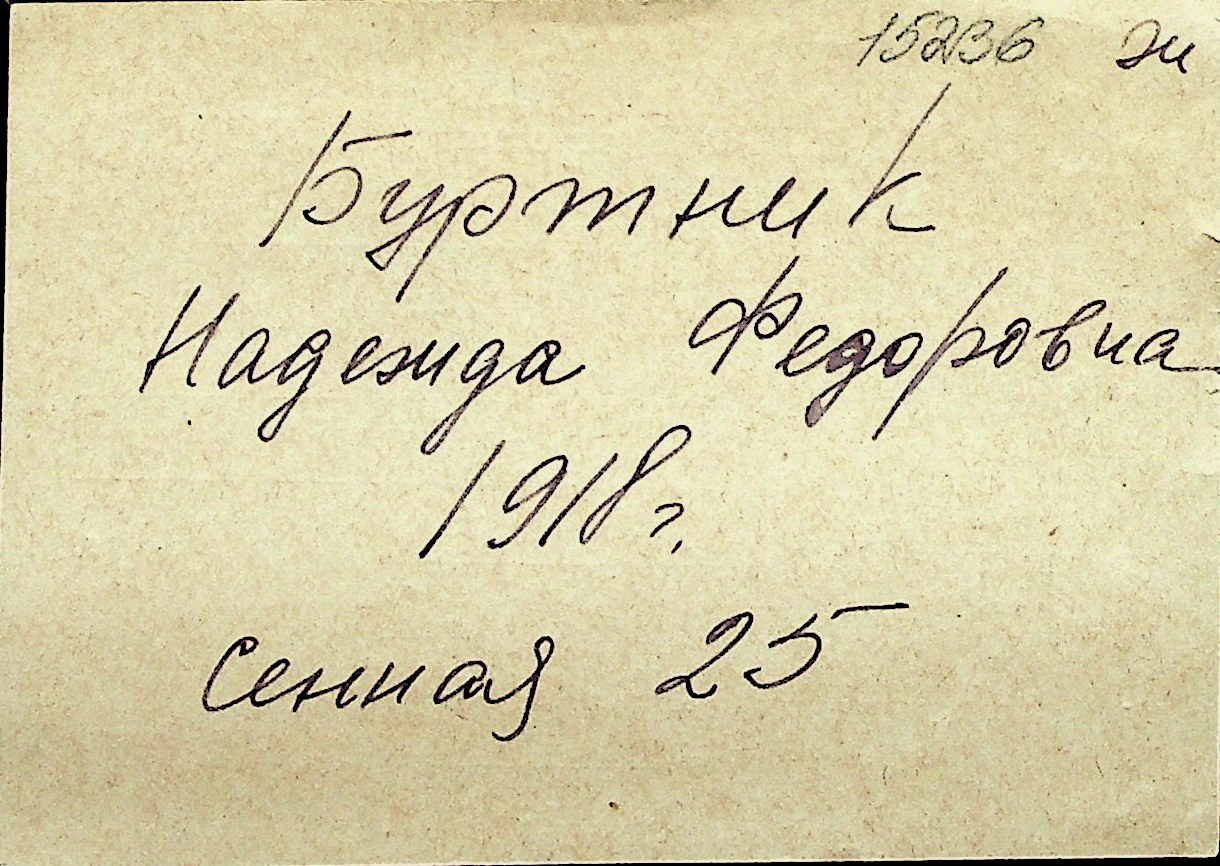 15236 ж
Буртник
Надежда Федоровна
1918 г.
Сенная 25